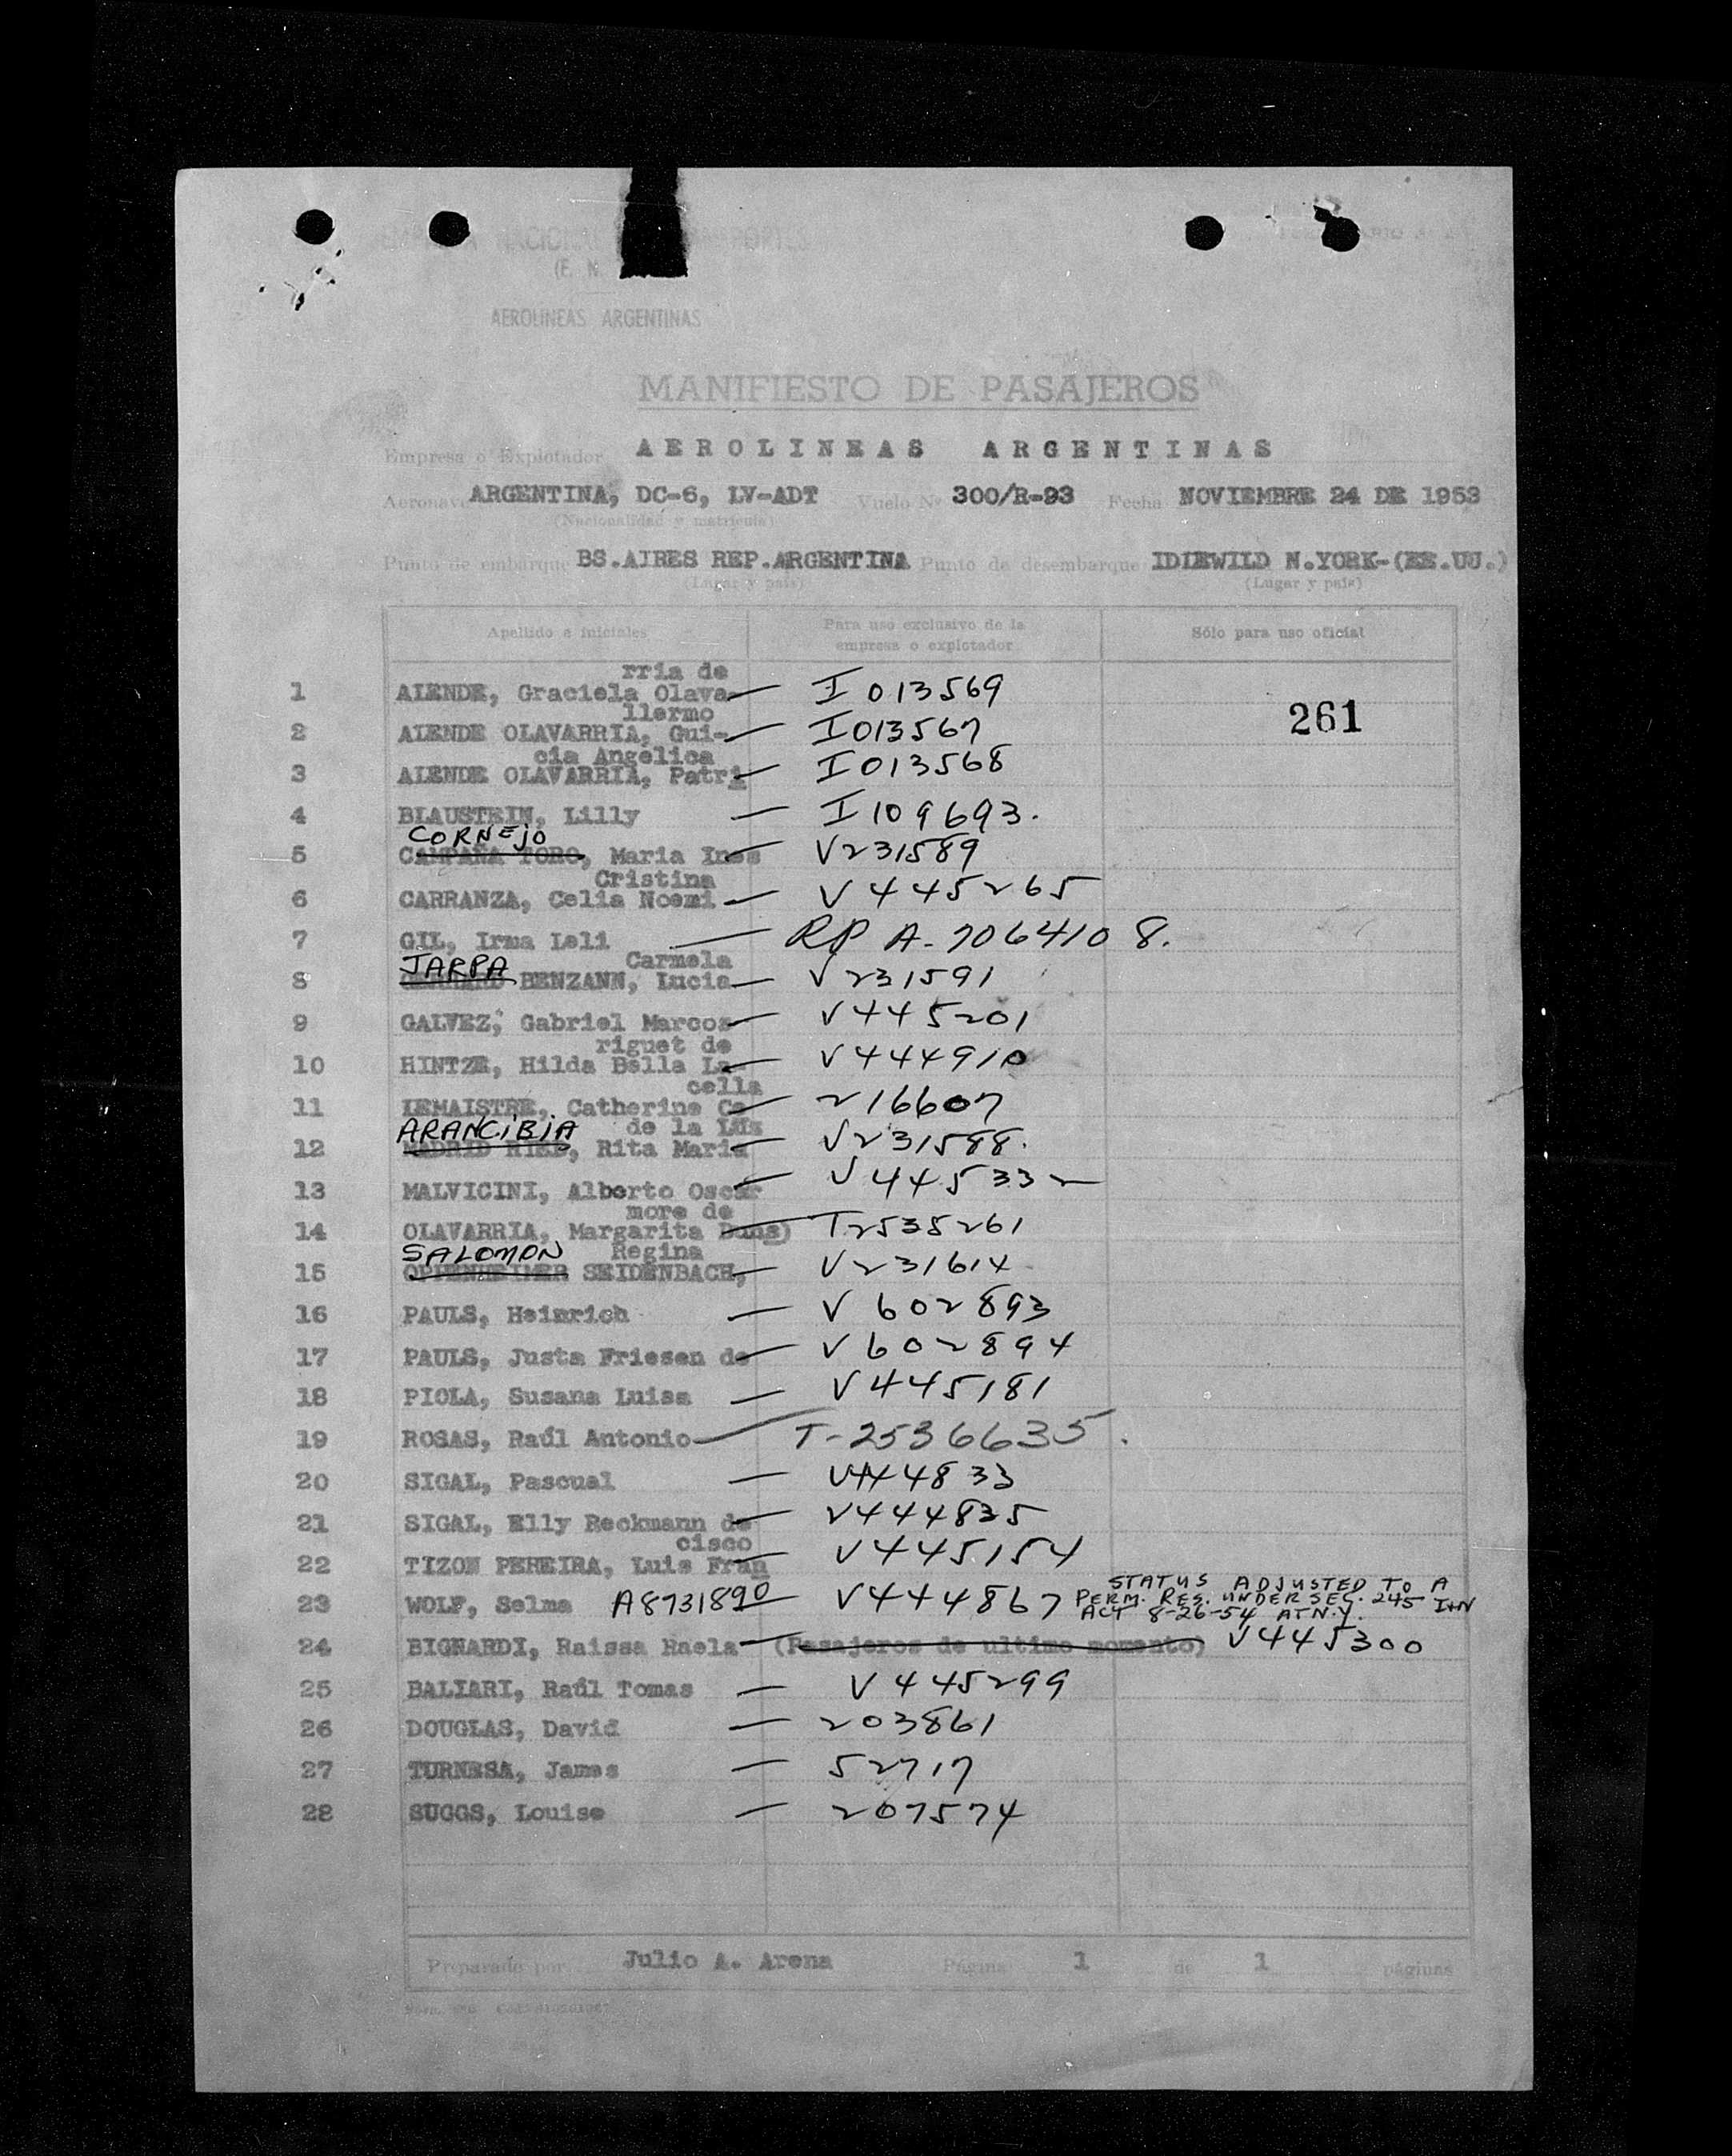 EMPRESA NACIONAL
(E. N.
AEROLINEAS ARGENTINAS
MANIFIESTO DE PASAJEROS
Empresa o Explotador AEROLINEAS ARGENTINAS
Aeronave ARGENTINA, DC-6, LV-ADT Vuelo Nº 300/R-93 Fecha NOVIEMBRE 24 DE 1953
(Nacionalidad y matrícula)
Punto de embarque BS.AIRES REP.ARGENTINA Punto de desembarque IDLEWILD N.YORK-(EE.UU.)
(Lugar y país) (Lugar y país)
Apellido e iniciales Para uso exclusivo de la Sólo para uso oficial
empresa o explotador
rria de
1 ALENDE, Graciela Olava- I 013569
261
llermo
2 ALENDE OLAVARRIA, Gui- I013567
cia Angelica
3 ALENDE OLAVARRIA, Patri I013568
4 BLAUSTEIN, Lilly — I109693.
CORNEJO
5 CAMPAÑA TORO, Maria Ines V231589
Cristina
6 CARRANZA, Celia Noemi — V445265
7 GIL, Irma Leli — RP A-7064108.
JARPA Carmela
8 BENZANN, Lucia — V231591
9 GALVEZ, Gabriel Marcos — V445201
riguet de
10 HINTZE, Hilda Bella La- V444910
cella
11 LEMAISTRE, Catherine Ce- 216607
ARANCIBIA de la Luz
12 MADRID, Rita Maria V231588.
13 MALVICINI, Alberto Oscar — V445332
more de
14 OLAVARRIA, Margarita Duns) T2535261
SALOMON Regina
15 OPPENHEIMER SEIDENBACH, — V231614
16 PAULS, Heinrich — V602893
17 PAULS, Justa Friesen de — V602894
18 PIOLA, Susana Luisa — V445181
19 ROSAS, Raúl Antonio — T-2536635.
20 SIGAL, Pascual — V444833
21 SIGAL, Elly Reckmann de — V444835
cisco
22 TIZON PEREIRA, Luis Fran V445154
23 WOLF, Selma A8731890 — V444867 STATUS ADJUSTED TO A
PERM. RES. UNDER SEC. 245 I+N
ACT 8-26-54 AT N.Y.
24 BIGNARDI, Raissa Raela — (Pasajeros de ultimo momento) V445300
25 BALIARI, Raúl Tomas — V445299
26 DOUGLAS, David — 203861
27 TURNESA, James — 52717
28 SUGGS, Louise — 207574
Preparado por Julio A. Arena Página 1 de 1 páginas